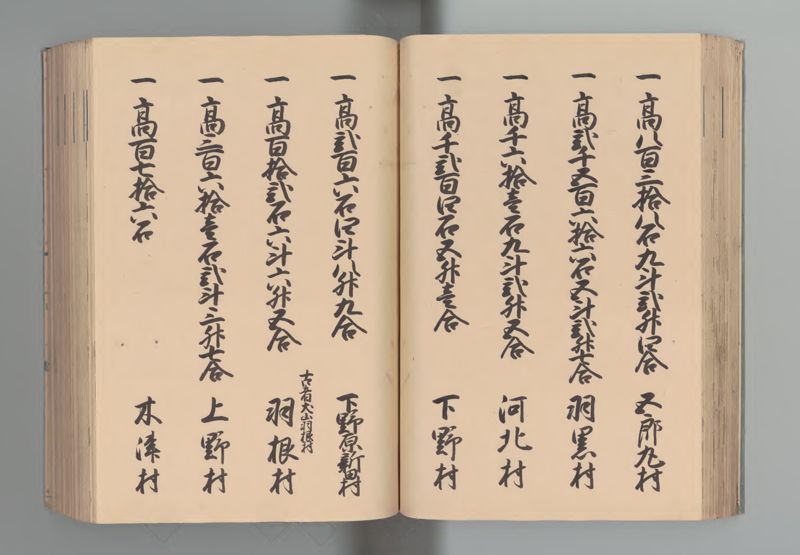 一高八百三拾八石九斗弐升四合 五郎丸村
一高弐千五百六拾六石五斗弐升七合 羽黒村
一高千六拾壱石九斗弐升五合 河北村
一高千弐百四石五升壱合 下野村
一高弐百六石四斗八升九合 下野原新田村
古者大山羽根村
一高百拾弐石六斗六升五合 羽根村
一高三百六拾壱石弐斗三升七合 上野村
一高百七拾六石 木津村